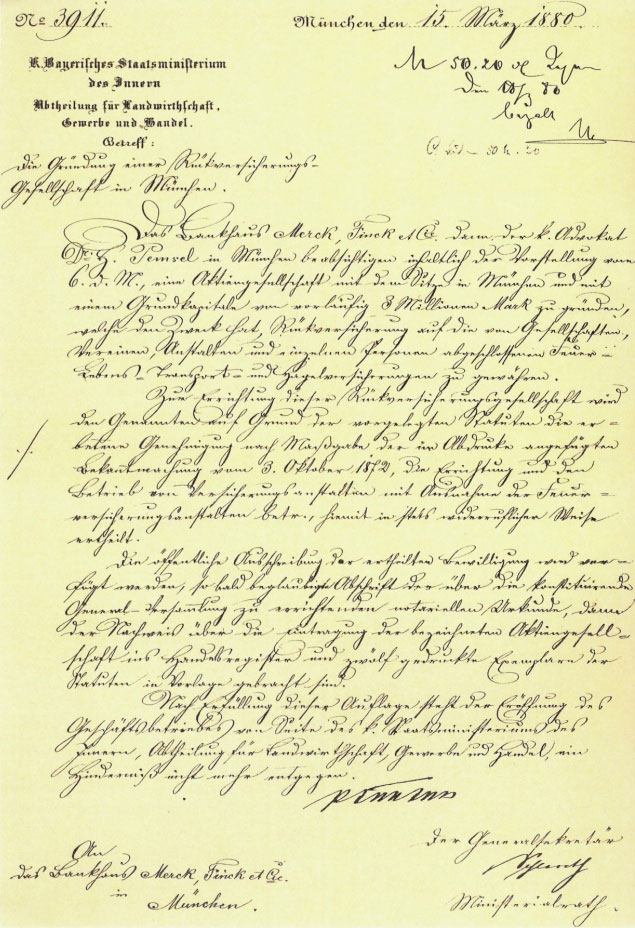 No 3911.
München den 15. März 1880.
K. Bayerisches Staatsministerium
des Innern
Abtheilung für Landwirthschaft,
Gewerbe und Handel.
Betreff:
M 50.20
bezalt
Die Gründung einer Rückversicherungs-
Gesellschaft in München.
Das Bankhaus Merck, Finck et Cie. dann der k. Advokat
Dr. H. Pemsel in München beabsichtigen inhaltlich der Vorstellung vom
6. d. M., eine Aktiengesellschaft mit dem Sitze in München und mit
einem Grundkapitale von vorläufig 3 Millionen Mark zu gründen,
welche den Zweck hat, Rückversicherung auf die von Gesellschaften,
Vereinen, Anstalten und einzelnen Personen abgeschlossenen Feuer-
Lebens- Transport- und Hagelversicherungen zu gewähren.
Zur Errichtung dieser Rückversicherungsgesellschaft wird
den Genannten auf Grund der vorgelegten Statuten die er-
betene Genehmigung nach Maßgabe der im Abdrucke angefügten
Bekanntmachung vom 3. Oktober 1872, die Errichtung und den
Betrieb von Versicherungsanstalten mit Ausnahme der Feuer-
versicherungsanstalten betr., hiemit in stets widerruflicher Weise
ertheilt.
Die öffentliche Ausschreibung der ertheilten Bewilligung wird ver-
fügt werden, so bald beglaubigte Abschrift der über die konstituirende
General-Versamlung zu errichtenden notariellen Urkunde, dann
der Nachweis über die Eintragung der bezeichneten Aktiengesell-
schaft ins Handelsregister und zwölf gedruckte Exemplare der
Statuten in Vorlage gebracht sind.
Nach Erfüllung dieser Auflage steht der Eröffnung des
Geschäftsbetriebes von Seite des k. Staatsministeriums des
Innern, Abtheilung für Landwirthschaft, Gewerbe und Handel, ein
Hinderniß nicht mehr entgegen.
Der Generalsekretär
Ministerialrath.
An
das Bankhaus Merck, Finck et Cie.
in
München.